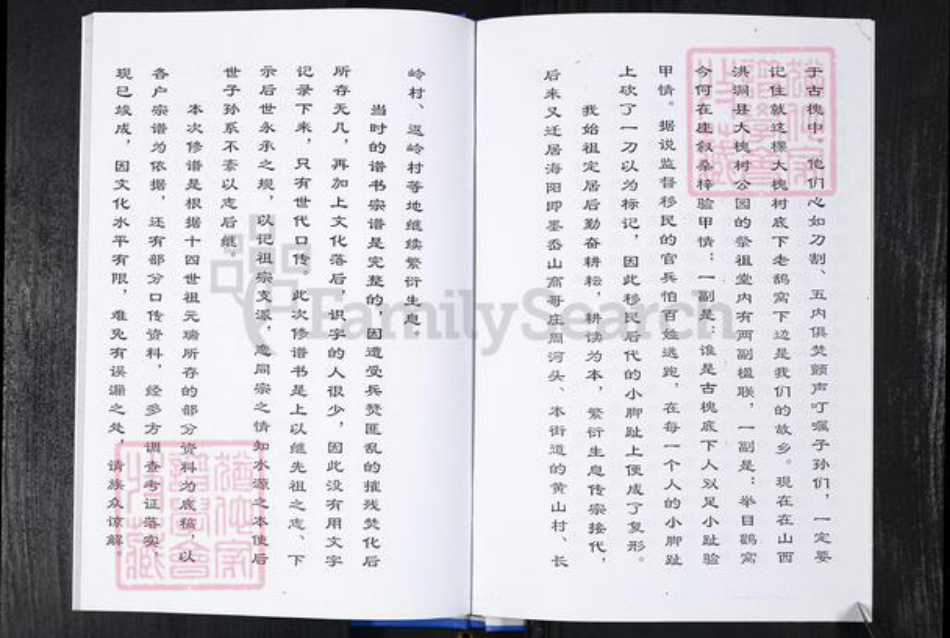 于古槐中，他们心如刀割、五内俱焚颤声叮嘱子孙们，一定要
记住就这棵大槐树底下老鸹窝下边是我们的故乡。现在在山西
洪洞县大槐树公园的祭祖堂内有两副楹联，一副是：举目鹳窝
今何在座叙桑梓验甲情；一副是：谁是古槐底下人双足小趾验
甲情。据说监督移民的官兵怕百姓逃跑，在每一个人的小脚趾
上砍了一刀以为标记，因此移民后代的小脚趾上便成了复形。
我始祖定居后勤奋耕耘，耕读为本，繁衍生息传宗接代，
后来又迁居海阳即墨岙山高哥庄周河头、本街道的黄山村、长
岭村、迟岭村等地继续繁衍生息
当时的谱书宗谱是完整的，因遭受兵焚匪乱的摧残焚化后
所存无几，再加上文化落后，识字的人很少，因此没有用文字
记录下来，只有世代口传。此次修谱书是上以继先祖之志、下
示后世永承之规，以记祖宗支源，志同宗之情知水源之本使后
世子孙系不紊以志后继。
本次修谱是根据十四世祖元瑞所存的部分资料为底稿，以
各户宗谱为依据，还有部分口传资料，经多方调查考证落实，
现已竣成，因文化水平有限，难免有误漏之处，请族众谅解。
FamilySearch